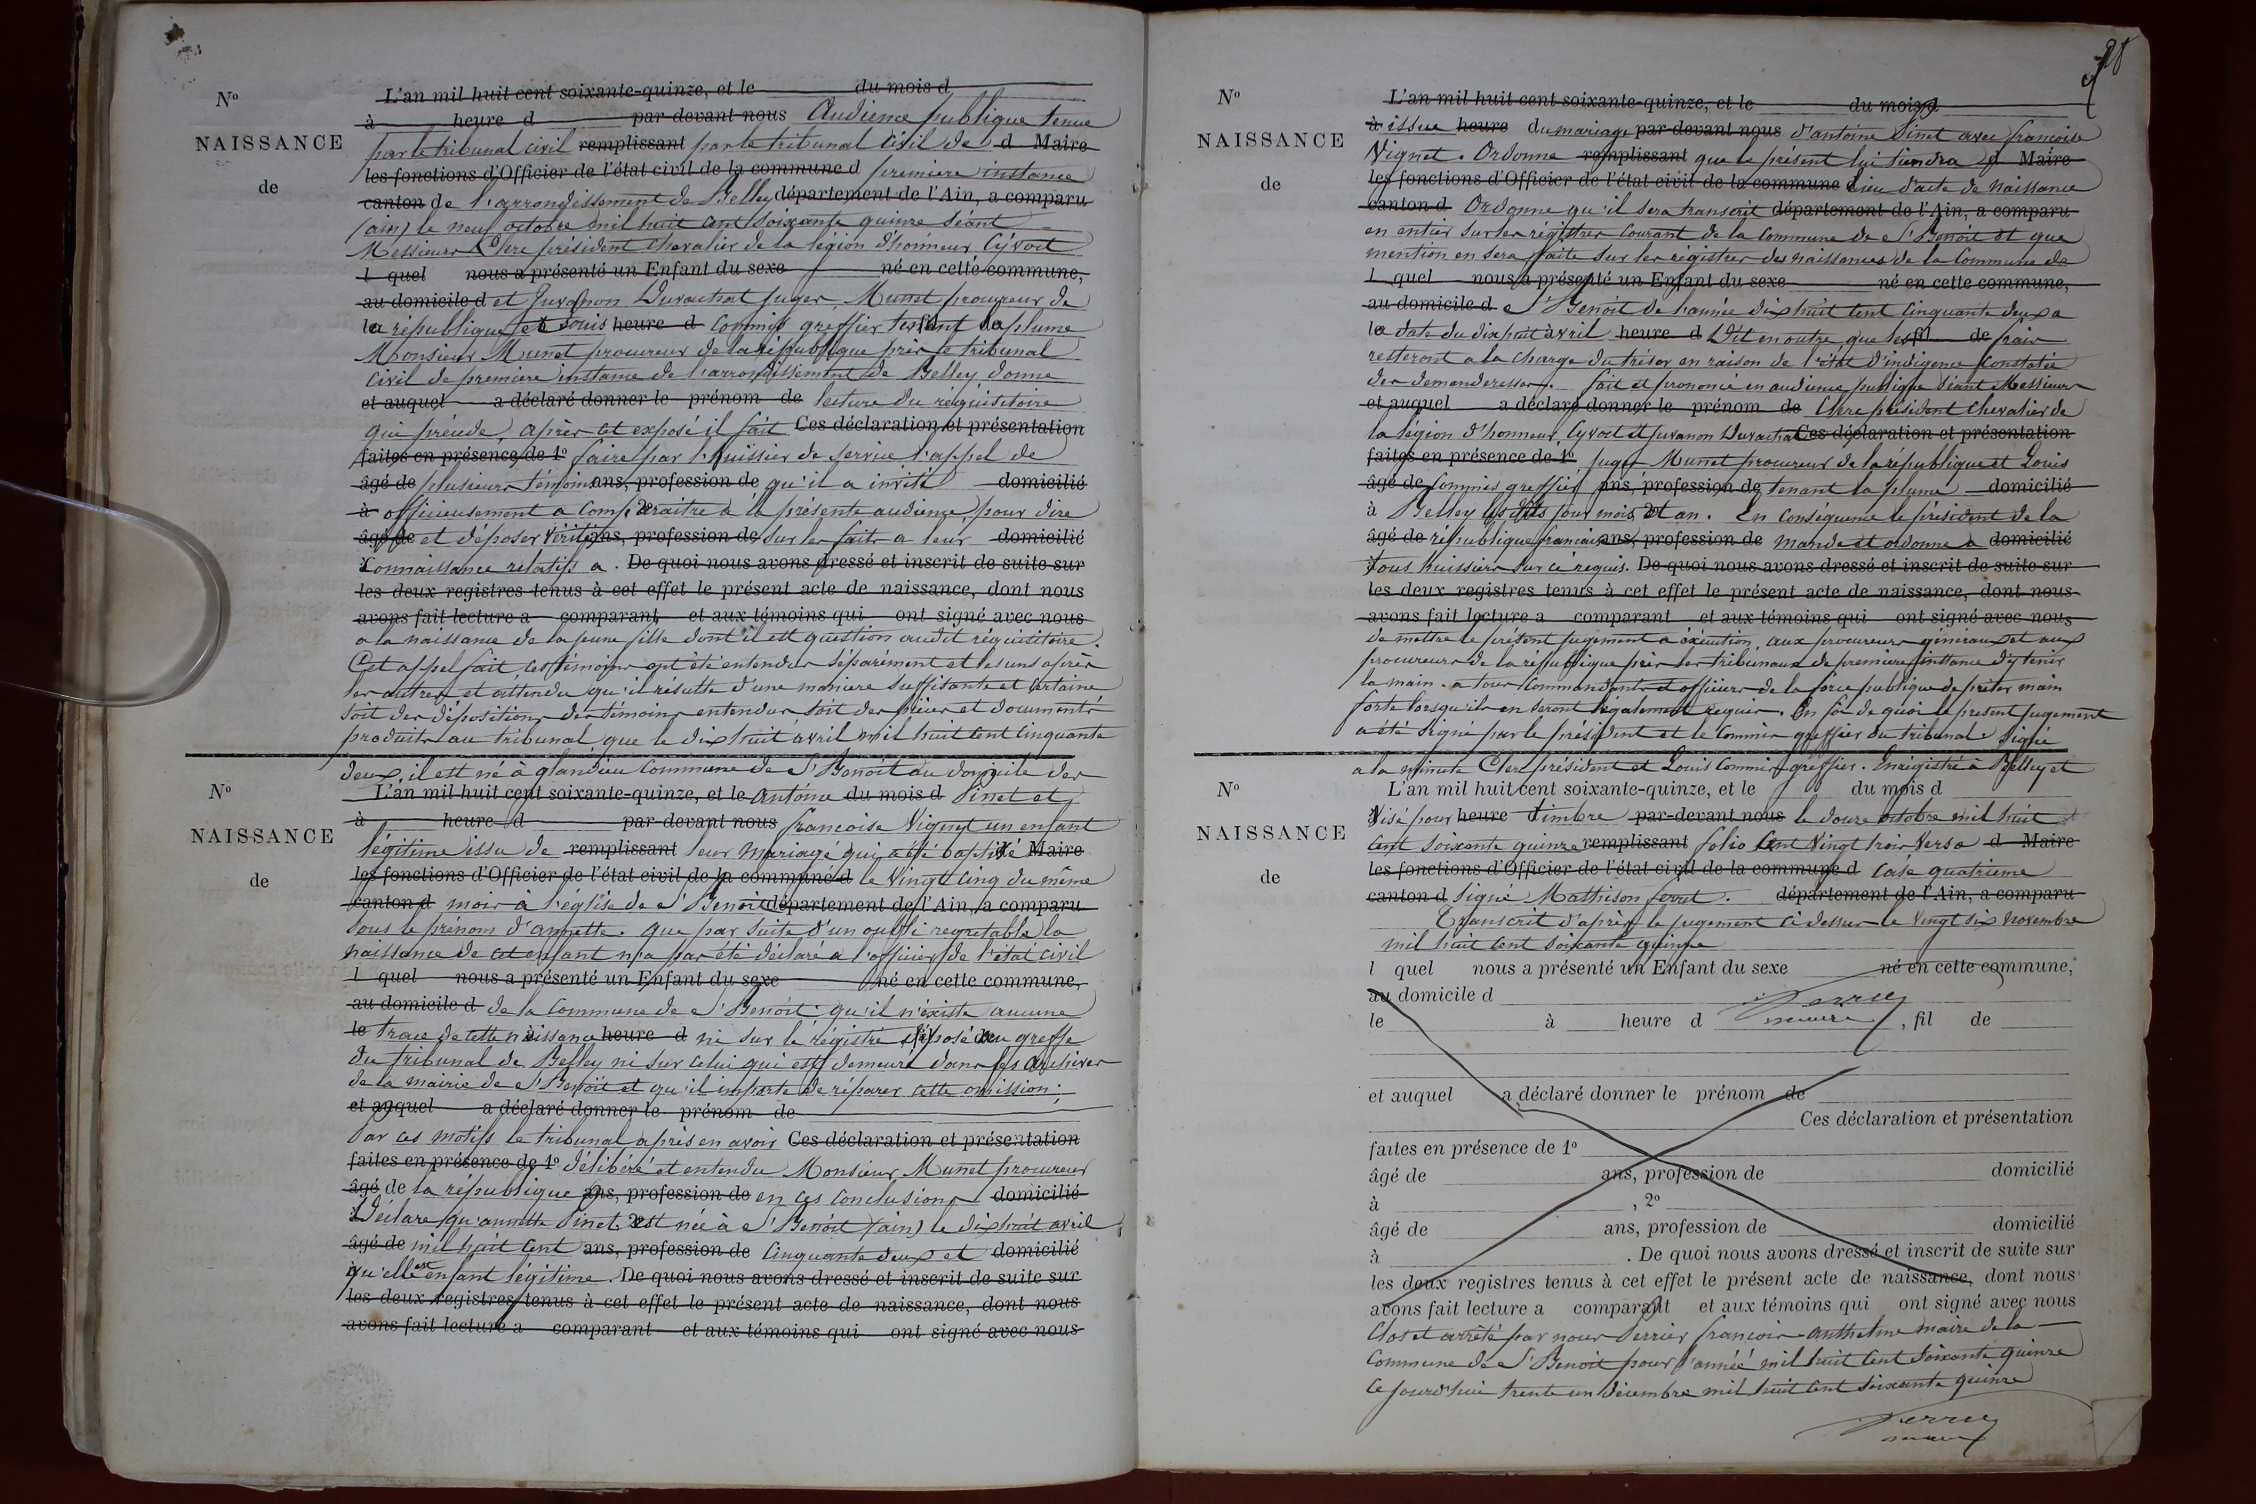 Nº
NAISSANCE
de
L'an mil huit cent soixante-quinze, et le du mois d
à heure d par-devant nous Audience publique tenue
par le tribunal civil remplissant par le tribunal civil de d Maire
les fonctions d'Officier de l'état civil de la commune d premiere instance
canton de l'arrondissement de Belley département de l'Ain, a comparu
(ain) le neuf octobre mil huit cent soixante quinze séant
Messieurs Clerc président chevalier de la légion d'honneur Cyvoct
l quel nous a présenté un Enfant du sexe né en cette commune,
au domicile d et Juvanon Duvachat juges, Munet procureur de
la république et Louis heure d commis greffier tenant la plume
Monsieur Munet procureur de la république près le tribunal
civil de premiere instance de l'arrondissement de Belley donne
et auquel a déclaré donner le prénom de lecture du réquisitoire
qui précède, après cet exposé il fait Ces déclaration et présentation
faites en présence de 1º faire par l'huissier de service l'appel de
âgé de plusieurs témoins ans, profession de qu'il a invité domicilié
à officieusement a comparaitre à la présente audience pour dire
âgé de et déposer vérité ans, profession de sur les faits a leur domicilié
connaissance relatifs a . De quoi nous avons dressé et inscrit de suite sur
les deux registres tenus à cet effet le présent acte de naissance, dont nous
avons fait lecture a comparant et aux témoins qui ont signé avec nous
a la naissance de la jeune fille dont il est question audit réquisitoire.
Cet appel fait, ces témoins ont été entendus séparément et les uns après
les autres, et attendu qu'il résulte d'une maniere suffisante et certaine
soit des dépositions des témoins entendus soit des pièces et documents
produits au tribunal que le dix huit avril mil huit cent cinquante
deux, il est né à glandieu commune de St Benoit au domicile des
Nº
NAISSANCE
de
L'an mil huit cent soixante-quinze, et le antoine du mois d Pinet et
à heure d par-devant nous francoise Vignet un enfant
légitime issu de remplissant leur mariage qui a été baptisé Maire
les fonctions d'Officier de l'état civil de la commune d le vingt cinq du même
canton d mois à l'église de St Benoit département de l'Ain, a comparu
sous le prénom d'annette. que par suite d'un oubli regretable la
naissance de cet enfant n'a pas été déclaré a l'officier de l'état civil
l quel nous a présenté un Enfant du sexe né en cette commune,
au domicile d de la commune de St Benoit. qu'il n'existe aucune
le trace de cette naissance heure d ni sur le régistre déposé au greffe
du tribunal de Belley ni sur celui qui est demeuré dans les archives
de la mairie de St Benoit et qu'il importe de réparer cette omission;
et auquel a déclaré donner le prénom de
Par ces motifs le tribunal après en avoir Ces déclaration et présentation
faites en présence de 1º délibéré et entendu Monsieur Munet procureur
âgé de la république ans, profession de en ces conclusions domicilié
Déclare qu'annette Pinet est née à St Benoit (ain) le dix huit avril
âgé de mil huit cent ans, profession de cinquante deux et domicilié
qu'elle est enfant légitime. De quoi nous avons dressé et inscrit de suite sur
les deux registres tenus à cet effet le présent acte de naissance, dont nous
avons fait lecture a comparant et aux témoins qui ont signé avec nous
Nº
NAISSANCE
de
L'an mil huit cent soixante-quinze, et le du mois d
à issue heure du mariage par-devant nous d'antoine Pinet avec francoise
Vignet. Ordonne remplissant que le présent lui tiendra d Maire
les fonctions d'Officier de l'état civil de la commune lieu d'acte de naissance
canton d Ordonne qu'il sera transcrit département de l'Ain, a comparu
en entier sur les régistres courant de la commune de St Benoit et que
mention en sera faite sur les régistres des naissances de la commune de
l quel nous a présenté un Enfant du sexe né en cette commune,
au domicile d St Benoit de l'année dix huit cent cinquante deux a
la date du dix huit avril heure d Dit en outre que les fil de frais
resteront a la charge du trésor en raison de l'état d'indigence constatée
des demanderesses. fait et prononcé en audience publique séant Messieurs
et auquel a déclaré donner le prénom de Clerc président chevalier de
la légion d'honneur, Cyvoct et Juvanon Duvachat Ces déclaration et présentation
faites en présence de 1º juges Munet procureur de la république et Louis
âgé de commis greffier ans, profession de tenant la plume domicilié
à Belley les dits jour mois et an. En conséquence le président de la
âgé de république francaise ans, profession de mande et ordonne a domicilié
tous huissiers sur ce requis. De quoi nous avons dressé et inscrit de suite sur
les deux registres tenus à cet effet le présent acte de naissance, dont nous
avons fait lecture a comparant et aux témoins qui ont signé avec nous
de mettre le présent jugement a éxécution, aux procureurs généraux et aux
procureurs de la république près les tribunaux de premiere instance d'y tenir
la main. a tous commandants et officiers de la force publique de prêter main
forte lorsqu'ils en seront légalement requis. En foi de quoi le présent jugement
a été signé par le président et le commis greffier du tribunal. Signé
a la minute Clerc président et Louis commis greffier. Enrégistré à Belley et
Nº
NAISSANCE
de
L'an mil huit cent soixante-quinze, et le du mois d
Visé pour heure timbre par-devant nous le douze octobre mil huit
cent soixante quinze remplissant folio cent vingt trois verso d Maire
les fonctions d'Officier de l'état civil de la commune d case quatrieme
canton d signé Mathison ferret. département de l'Ain, a comparu
Transcrit d'après le jugement ci dessus le vingt six novembre
mil huit cent soixante quinze
l quel nous a présenté un Enfant du sexe né en cette commune,
au domicile d Perrier
le à heure d maire , fil de
et auquel a déclaré donner le prénom de
Ces déclaration et présentation
faites en présence de 1º
âgé de ans, profession de domicilié
à , 2º
âgé de ans, profession de domicilié
à . De quoi nous avons dressé et inscrit de suite sur
les deux registres tenus à cet effet le présent acte de naissance, dont nous
avons fait lecture a comparant et aux témoins qui ont signé avec nous
Clos et arrêté par nous Perrier francois anthelme maire de la
commune de St Benoit pour l'année mil huit cent soixante quinze
ce jourd'hui trente un décembre mil huit cent soixante quinze
Perrier
maire